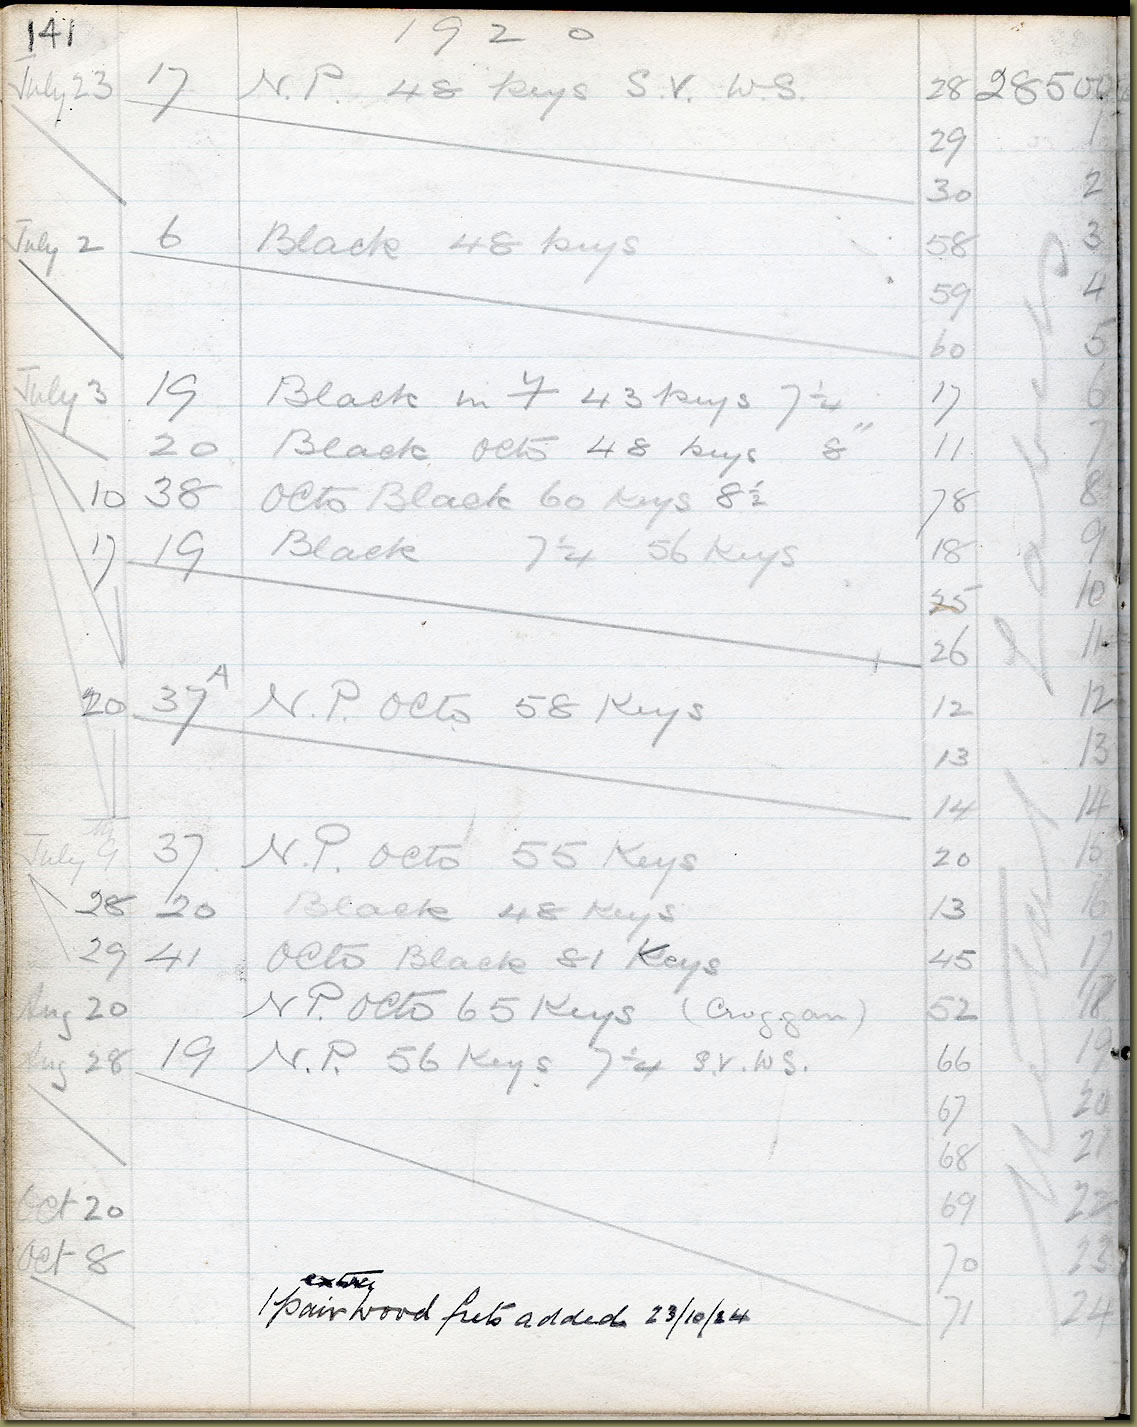 141 1920
July 23 17 N.P. 48 keys S.V. W.S. 28 28500
29 1
30 2
July 2 6 Black 48 keys 58 3
59 4
60 5
July 3 19 Black in F 43 keys 7¼ 17 6
20 Black Octo 48 keys 8" 11 7
10 38 Octo Black 60 Keys 8½ 78 8
17 19 Black 7¼ 56 Keys 18 9
25 10
26 11
20 37A N.P. Octo 58 Keys 12 12
13 13
14 14
July 9th 37 N.P. Octo 55 Keys 20 15
28 20 Black 48 Keys 13 16
29 41 Octo Black 81 Keys 45 17
Aug 20 N.P. Octo 65 Keys (Croggan) 52 18
Aug 28 19 N.P. 56 Keys 7¼ S.V. W.S. 66 19
67 20
68 21
Oct 20 69 22
Oct 8 70 23
extra
1 pair wood frets added 23/10/24 71 24